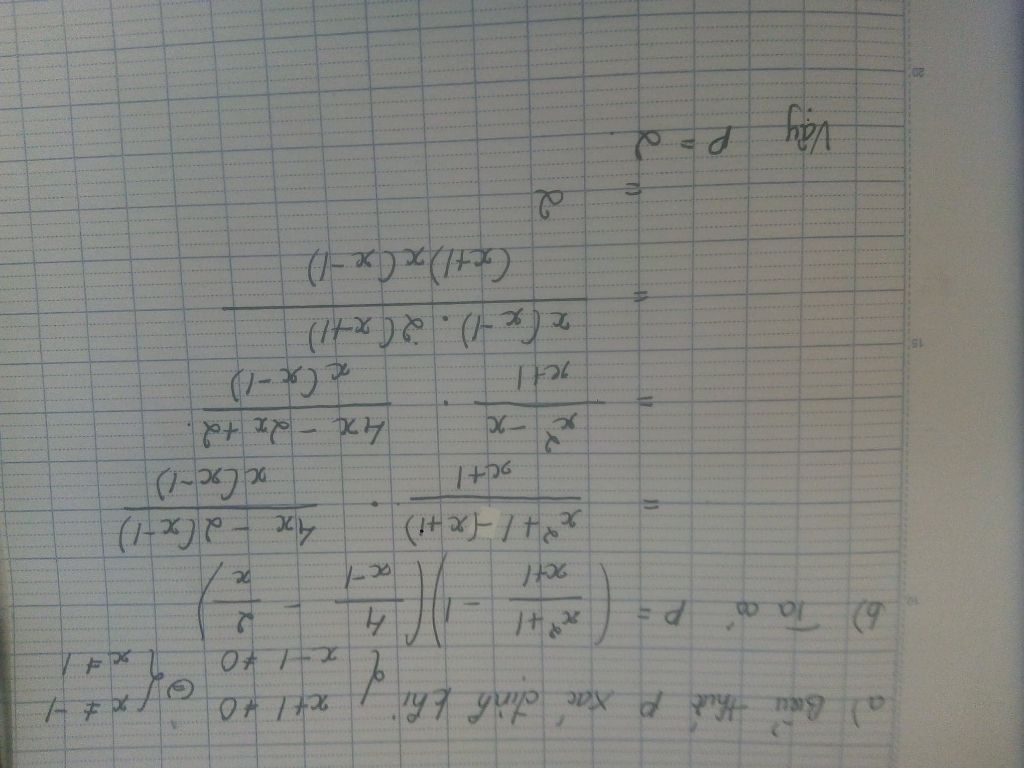 a) Biểu thức P xác định khi { x+1 ≠ 0 ⇔ { x ≠ -1
x-1 ≠ 0 x ≠ 1
b) Ta có P = ( (x²+1)/(x+1) - 1 ) ( 4/(x-1) - 2/x )
= (x²+1-(x+1))/(x+1) . (4x - 2(x-1))/(x(x-1))
= (x² - x)/(x+1) . (4x - 2x + 2)/(x(x-1))
= (x(x-1) . 2(x+1))/((x+1)x(x-1))
= 2
Vậy P = 2